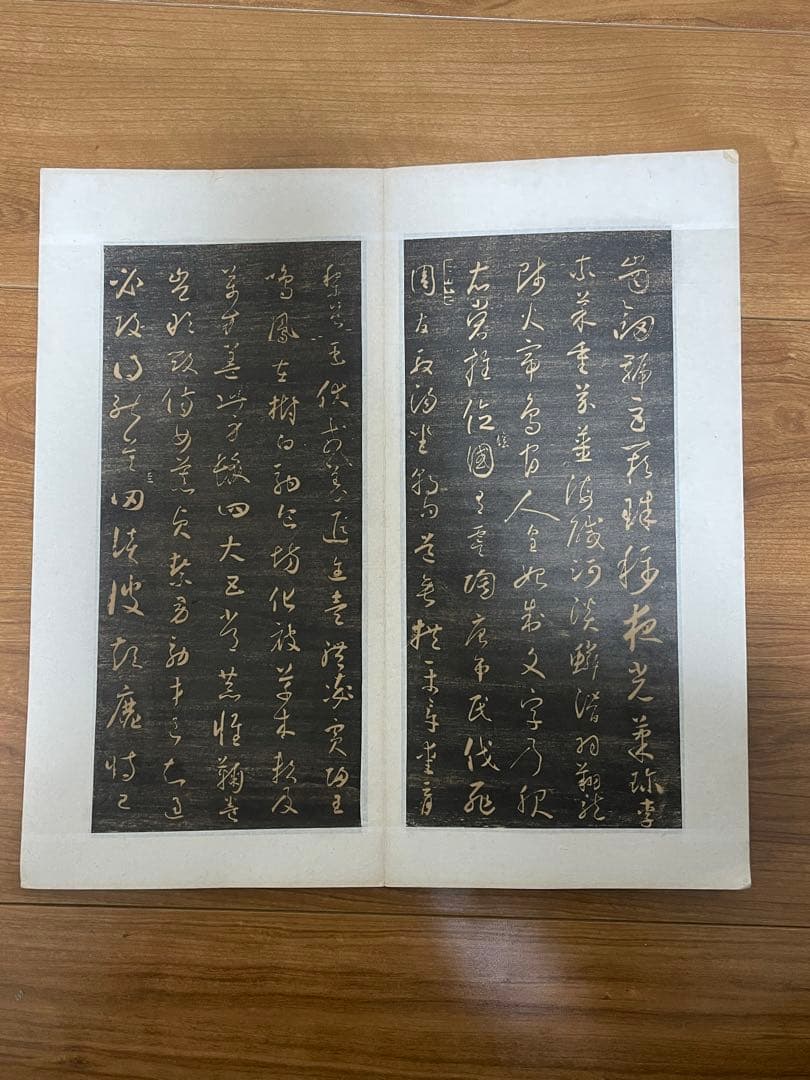 崗劍號巨闕珠稱夜光菓珍李
柰菜重芥薑海鹹河淡鱗潛羽翔龍
師火帝鳥官人皇始制文字乃服
衣裳推位讓國有虞陶唐弔民伐罪
周發殷湯坐朝問道垂拱平章愛育
黎首臣伏戎羌遐邇壹體率賓歸王
鳴鳳在樹白駒食場化被草木賴及
萬方蓋此身髮四大五常恭惟鞠養
豈敢毀傷女慕貞絜男効才良知過
必改得能莫忘罔談彼短靡恃己